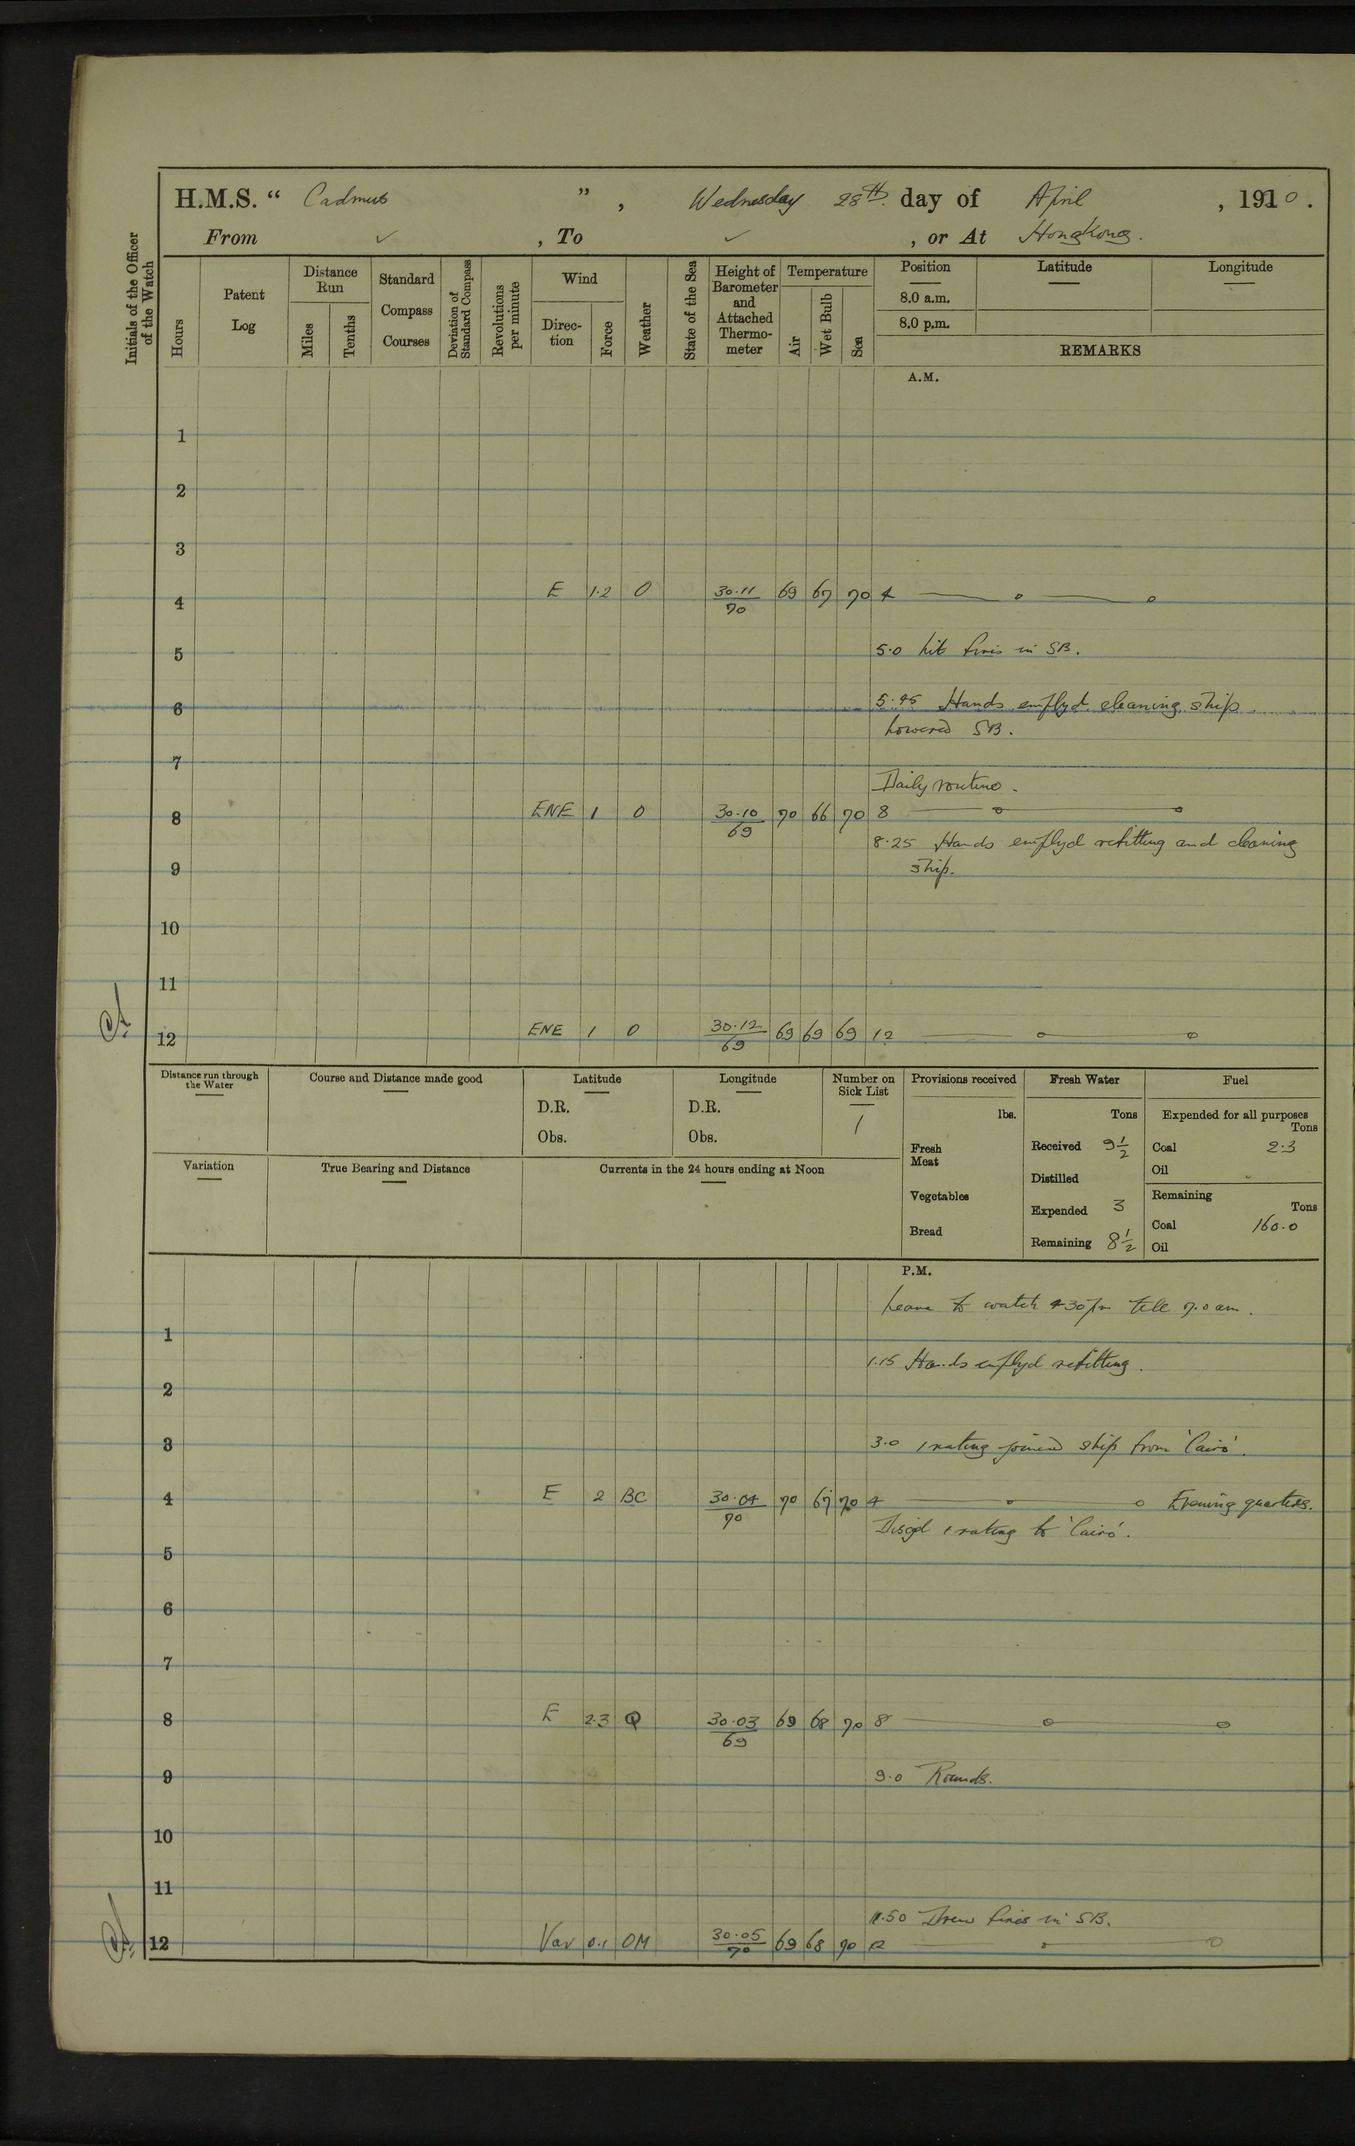 H.M.S. “ Cadmus ” , Wednesday 28th. day of April , 1920 .
From ✓ , To ✓ , or At Hongkong.
Initials of the Officer of the Watch
Hours
Patent Log
Distance Run
Miles
Tenths
Standard Compass Courses
Deviation of Standard Compass
Revolutions per minute
Wind
Direc-tion
Force
Weather
State of the Sea
Height of Barometer and Attached Thermo-meter
Temperature
Air
Wet Bulb
Sea
Position Latitude Longitude
8.0 a.m.
8.0 p.m.
REMARKS
A.M.
1
2
3
4 E 1·2 O 30·11/70 69 67 70 4
5 5·0 Lit fires in SB.
6 5·45 Hands employd cleaning ship.
Lowered SB.
7
Daily routine.
8 ENE 1 O 30·10/69 70 66 70 8
8·25 Hands employd refitting and cleaning
9 ship.
10
11
12 ENE 1 O 30·12/69 69 69 69 12
Distance run through the Water
Course and Distance made good
Latitude
D.R.
Obs.
Longitude
D.R.
Obs.
Number on Sick List
1
Provisions received
lbs.
Fresh Meat
Vegetables
Bread
Fresh Water
Tons
Received 9½
Distilled
Expended 3
Remaining 8½
Fuel
Expended for all purposes
Tons
Coal 2·3
Oil
Remaining
Tons
Coal 160·0
Oil
Variation
True Bearing and Distance
Currents in the 24 hours ending at Noon
P.M.
Leave to watch 4 30 pm till 7.0 am.
1
1.15 Hands employd refitting.
2
3 3·0 1 rating joined ship from 'Cairo'.
4 E 2 BC 30·04/70 70 67 70 4 Evening quarters.
Disgd 1 rating to 'Cairo'.
5
6
7
8 E 2·3 Q 30·03/69 69 68 70 8
9 9·0 Rounds.
10
11
11.50 Drew fires in SB.
12 Var 0·1 OM 30·05/70 69 68 70 12